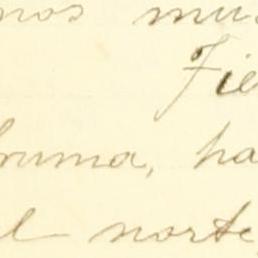 nos mu
Fie
bruma, ha
el norte,